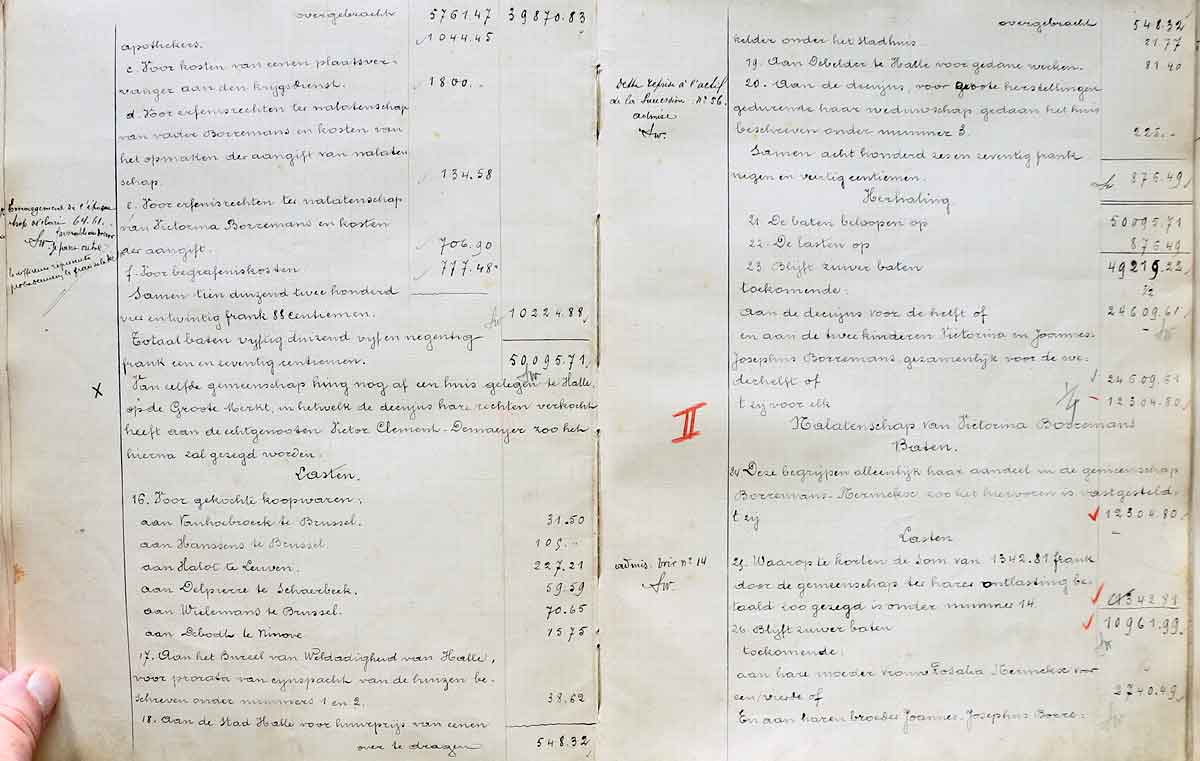 overgebracht 5761.47 39870.83
apothekers. 1044.45
c. Voor kosten van eenen plaatsver-
vanger aan den krijgsdienst. 1800.-
d. Voor erfenisrechten te nalatenschap
van vader Borremans en kosten van
het opmaken der aangift van nalaten
schap. 134.58
e. Voor erfenisrechten te nalatenschap
van Victorina Borremans en kosten
der aangift. 706.90
f. Voor begrafeniskosten 777.48
Samen tien duizend twee honderd
vier en twintig frank 88 centiemen. 10224.88
Totaal baten vijftig duizend vijf en negentig
frank een en zeventig centiemen. 50,095.71
X Van zelfde gemeenschap hing nog af een huis gelegen te Halle,
op de Groote Merkt, in hetwelk de decujus hare rechten verkocht
heeft aan de echtgenooten Victor Clement-Demaeyer zoo het
hierna zal gezegd worden.
Lasten.
16. Voor gekochte koopwaren:
aan Vanhoebroeck te Brussel. 31.50
aan Hanssens te Brussel. 105.-
aan Halot te Leuven. 227.21
aan Delpierre te Schaerbeek. 59.59
aan Wielemans te Brussel. 70.65
aan Debodt te Ninove 15 75
17. Aan het Bureel van Weldadigheid van Halle,
voor prorata van cynspacht van de huizen be-
schreven onder nummers 1 en 2. 38.62
18. Aan de Stad Halle voor huurprijs van eenen
over te dragen 548.32
overgebracht 548.32
kelder onder het Stadhuis 21.77
19. Aan Debelder te Halle voor gedane werken. 81.40
Dette reprise à l'actif
de la Succession N° 56.
admise
20. Aan de decujus, voor groote herstellingen
gedurende haar weduwschap gedaan het huis
beschreven onder nummer 3. 225.-
Samen acht honderd zes en zeventig frank
negen en veertig centiemen. 876.49
Herhaling
21. De baten beloopen op 50095.71
22. De lasten op 876.49
23. Blijft zuiver baten 49219.22
toekomende: 1/2
aan de decujus voor de helft of 24609.61
en aan de twee kinderen Victorina en Joannes-
Josephus Borremans, gezamenlijk voor de we-
derhelft of 24609.61
't zij voor elk 1/4 12304.80
II
Nalatenschap van Victorina Borremans
Baten.
24. Deze begrijpen alleenlijk haar aandeel in de gemeenschap
Borremans-Nerinckx zoo het hiervoren is vastgesteld,
't zij 12304.80
Lasten
admis. voir n° 14
25. Waarop te korten de som van 1342.81 frank
door de gemeenschap ter harer ontlasting be-
taald zoo gezegd is onder nummer 14. 1342.81
26. Blijft zuiver baten 10961.99
toekomende:
aan hare moeder vrouw Rosalia Nerinckx voor
een vierde of 2740.49
En aan haren broeder Joannes-Josephus Borre-